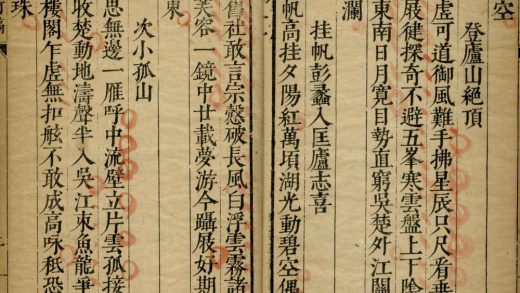 空
登廬山絕頂
虛可道御風難手拂星辰只尺看垂
展健探奇不避五峯寒雲盤上下陰
東南日月寬目勢直窮吳楚外江關
瀾
挂帆彭蠡入匡廬志喜
帆高挂夕陽紅萬頃湖光動碧空偶
舊社敢言宗慤破長風白浮雲霧諸
芙容一鏡中廿載夢游今躡展好期
東
次小孤山
思無邊一雁呼中流壁立片雲孤接
收楚動地濤聲半入吳江東魚龍爭
樓閣乍虛無扣舷不敢成高咏秪恐
珠